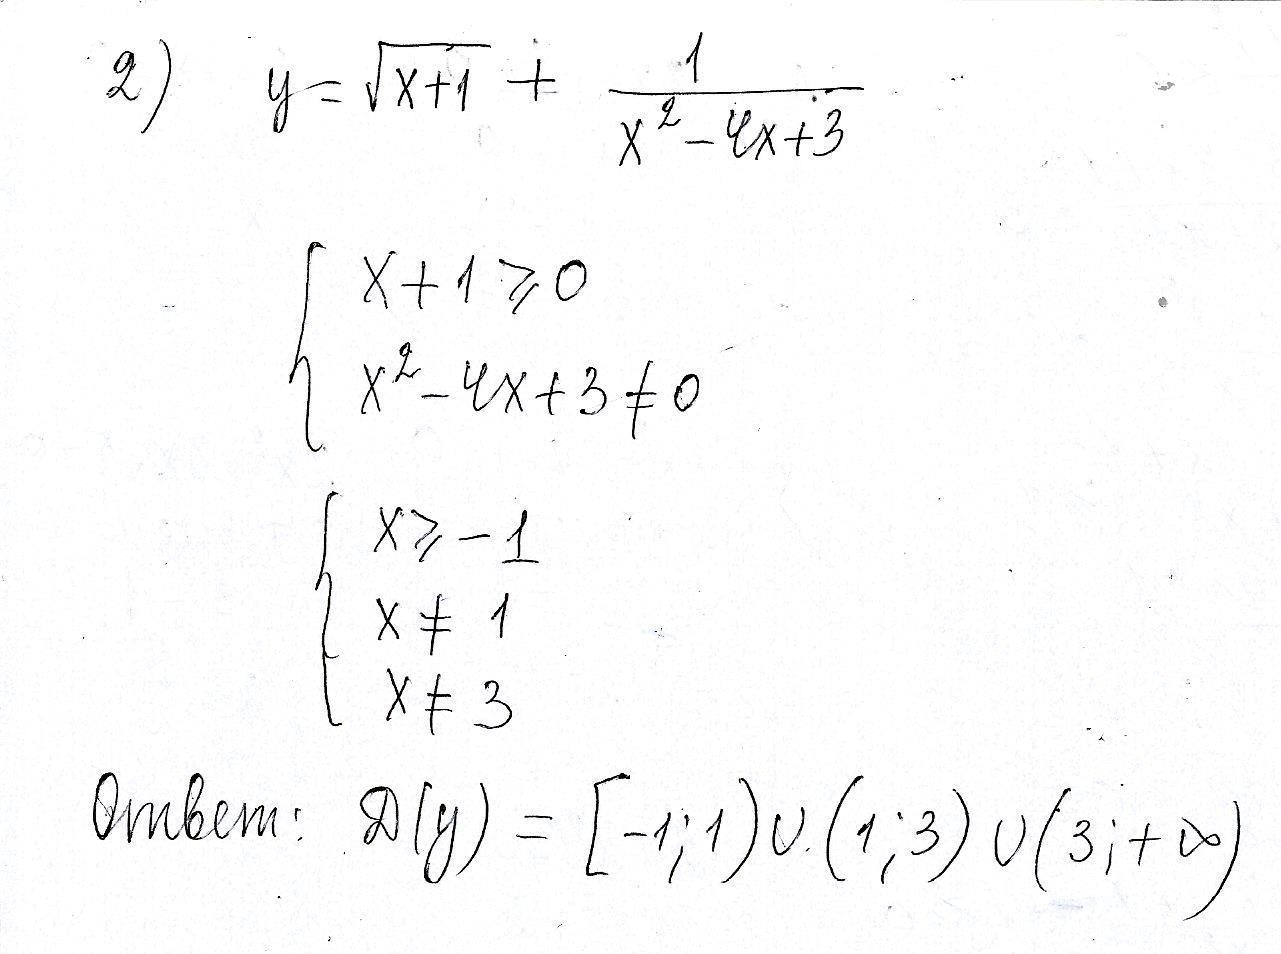 2) y = √x+1 + 1/(x² - 4x + 3)
x + 1 ⩾ 0
x² - 4x + 3 ≠ 0
x ⩾ -1
x ≠ 1
x ≠ 3
Ответ: D(y) = [-1; 1) ∪ (1; 3) ∪ (3; +∞)